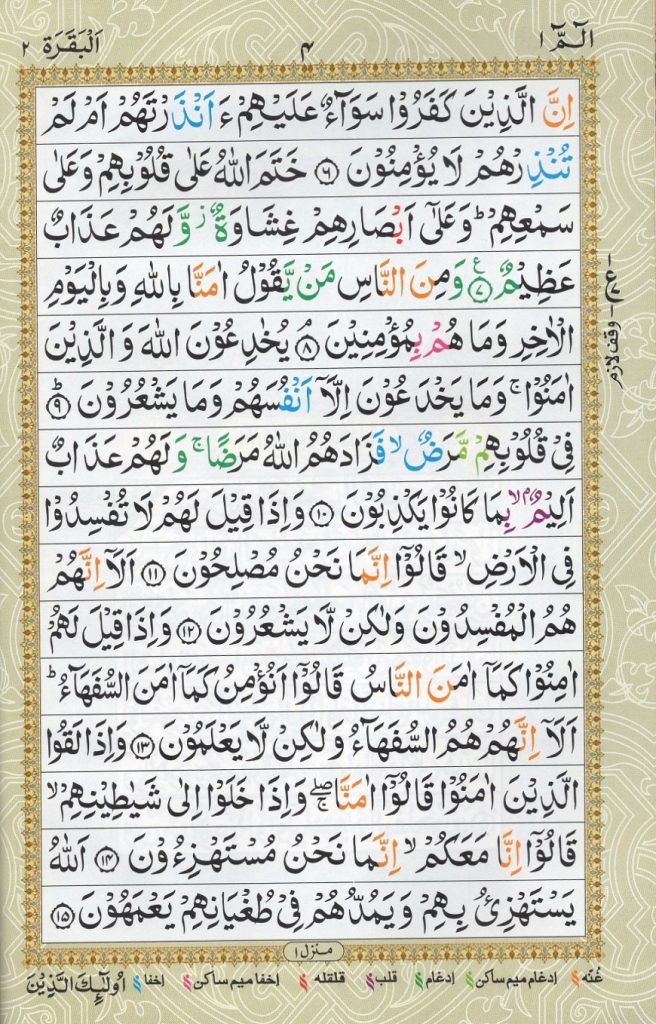 الٓمّٓ ١
٤
اَلْبَقَرَة ٢
اِنَّ الَّذِيْنَ كَفَرُوْا سَوَآءٌ عَلَيْهِمْ ءَاَنْذَرْتَهُمْ اَمْ لَمْ
تُنْذِرْهُمْ لَا يُؤْمِنُوْنَ ۝٦ خَتَمَ اللّٰهُ عَلٰى قُلُوْبِهِمْ وَعَلٰى
سَمْعِهِمْ ؕ وَعَلٰۤى اَبْصَارِهِمْ غِشَاوَةٌ ؗ وَّلَهُمْ عَذَابٌ
عَظِيْمٌ ۝٧ ع وَمِنَ النَّاسِ مَنْ يَّقُوْلُ اٰمَنَّا بِاللّٰهِ وَبِالْيَوْمِ
الْاٰخِرِ وَمَا هُمْ بِمُؤْمِنِيْنَ ۝٨ۘ يُخٰدِعُوْنَ اللّٰهَ وَالَّذِيْنَ
اٰمَنُوْا ۚ وَمَا يَخْدَعُوْنَ اِلَّاۤ اَنْفُسَهُمْ وَمَا يَشْعُرُوْنَ ۝٩ؕ
فِيْ قُلُوْبِهِمْ مَّرَضٌ ۙ فَزَادَهُمُ اللّٰهُ مَرَضًا ۚ وَلَهُمْ عَذَابٌ
اَلِيْمٌۢ ۙ بِمَا كَانُوْا يَكْذِبُوْنَ ۝١٠ وَاِذَا قِيْلَ لَهُمْ لَا تُفْسِدُوْا
فِى الْاَرْضِ ۙ قَالُوْۤا اِنَّمَا نَحْنُ مُصْلِحُوْنَ ۝١١ اَلَاۤ اِنَّهُمْ
هُمُ الْمُفْسِدُوْنَ وَلٰكِنْ لَّا يَشْعُرُوْنَ ۝١٢ وَاِذَا قِيْلَ لَهُمْ
اٰمِنُوْا كَمَاۤ اٰمَنَ النَّاسُ قَالُوْۤا اَنُؤْمِنُ كَمَاۤ اٰمَنَ السُّفَهَآءُ ؕ
اَلَاۤ اِنَّهُمْ هُمُ السُّفَهَآءُ وَلٰكِنْ لَّا يَعْلَمُوْنَ ۝١٣ وَاِذَا لَقُوا
الَّذِيْنَ اٰمَنُوْا قَالُوْۤا اٰمَنَّا ۖۚ وَاِذَا خَلَوْا اِلٰى شَيٰطِيْنِهِمْ ۙ
قَالُوْۤا اِنَّا مَعَكُمْ ۙ اِنَّمَا نَحْنُ مُسْتَهْزِءُوْنَ ۝١٤ اَللّٰهُ
يَسْتَهْزِئُ بِهِمْ وَيَمُدُّهُمْ فِيْ طُغْيَانِهِمْ يَعْمَهُوْنَ ۝١٥
وقف لازم
منزل ١
غُنّه
ادغام ميم ساكن
ادغام
قلب
قلقله
اخفا ميم ساكن
اخفا
اُولٰٓئِكَ الَّذِيْنَ